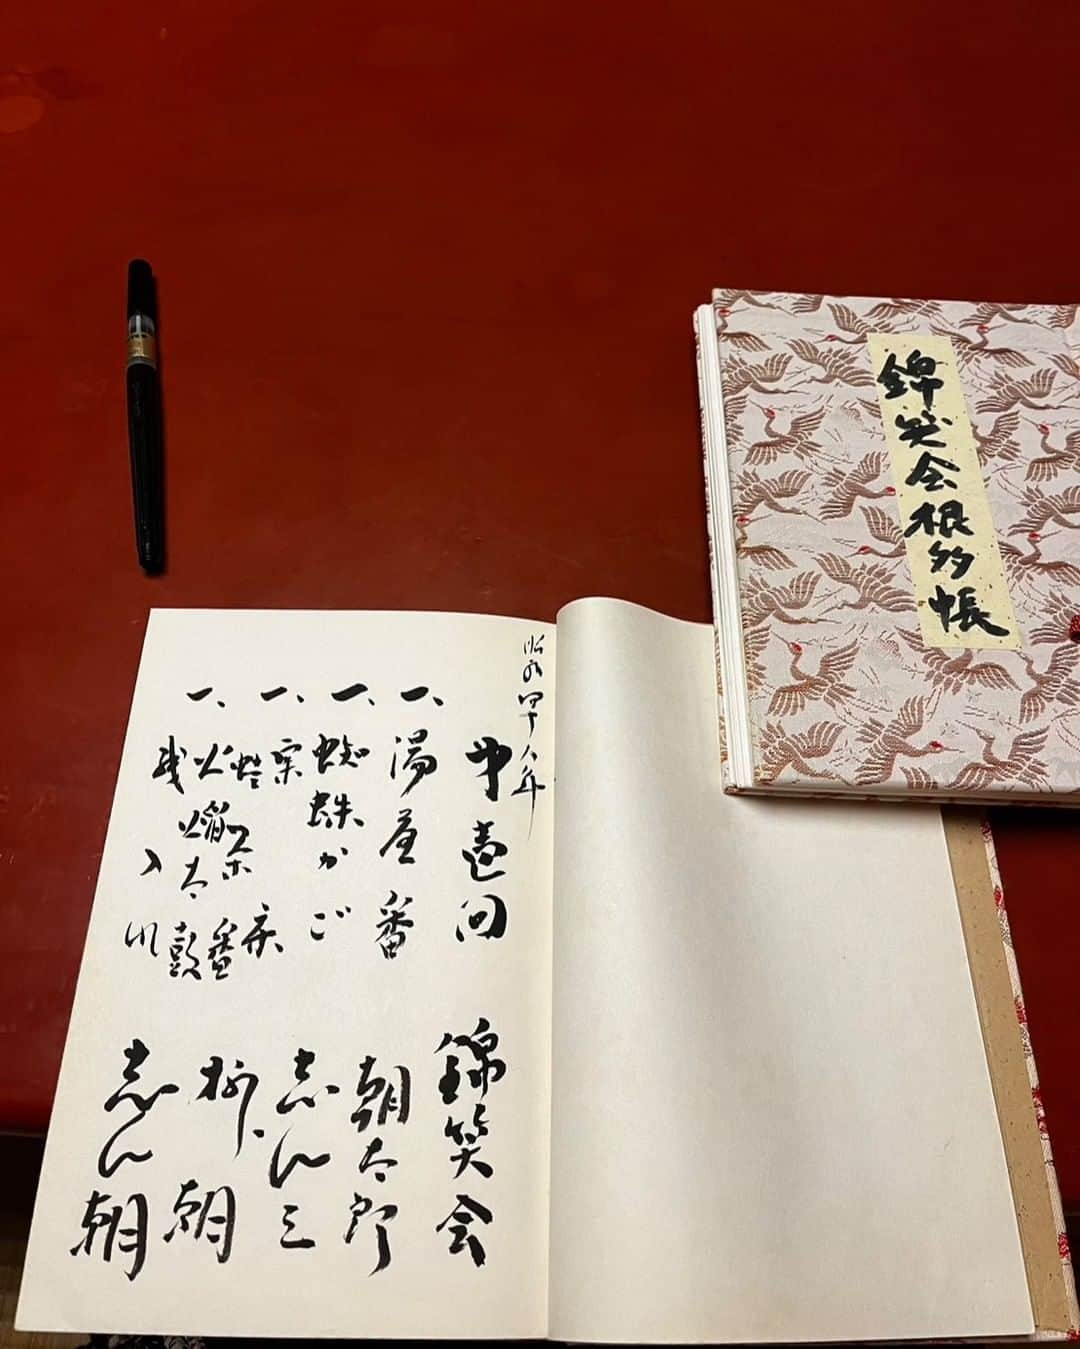 錦笑会根多帳
昭和四十八年
第壱回 錦笑会
一、湯屋番 朝太郎
一、蜘蛛かご 志ん三
一、
蛙茶番 柳朝
一、火焔太鼓
志ん朝